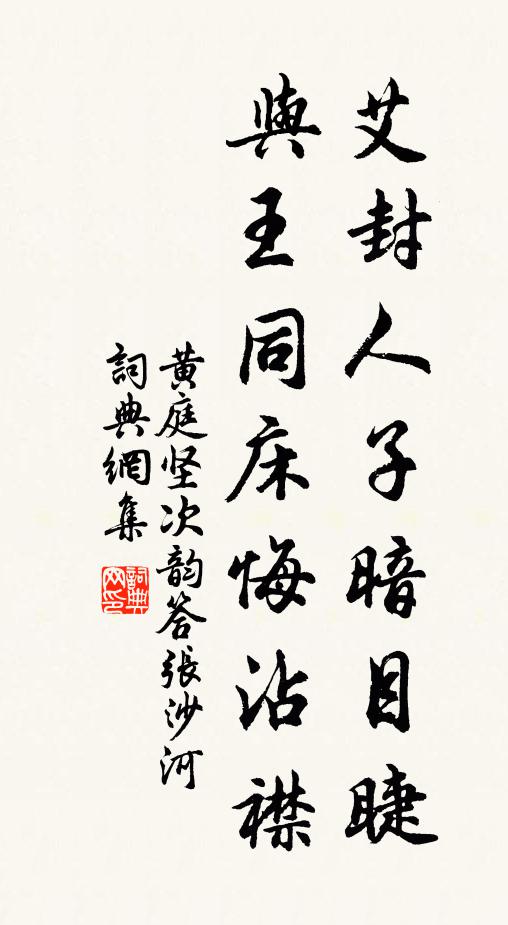 艾封人子暗目睫
與王同床悔沾襟
黄庭坚次韵答張沙河
詞典網集
詞典网印